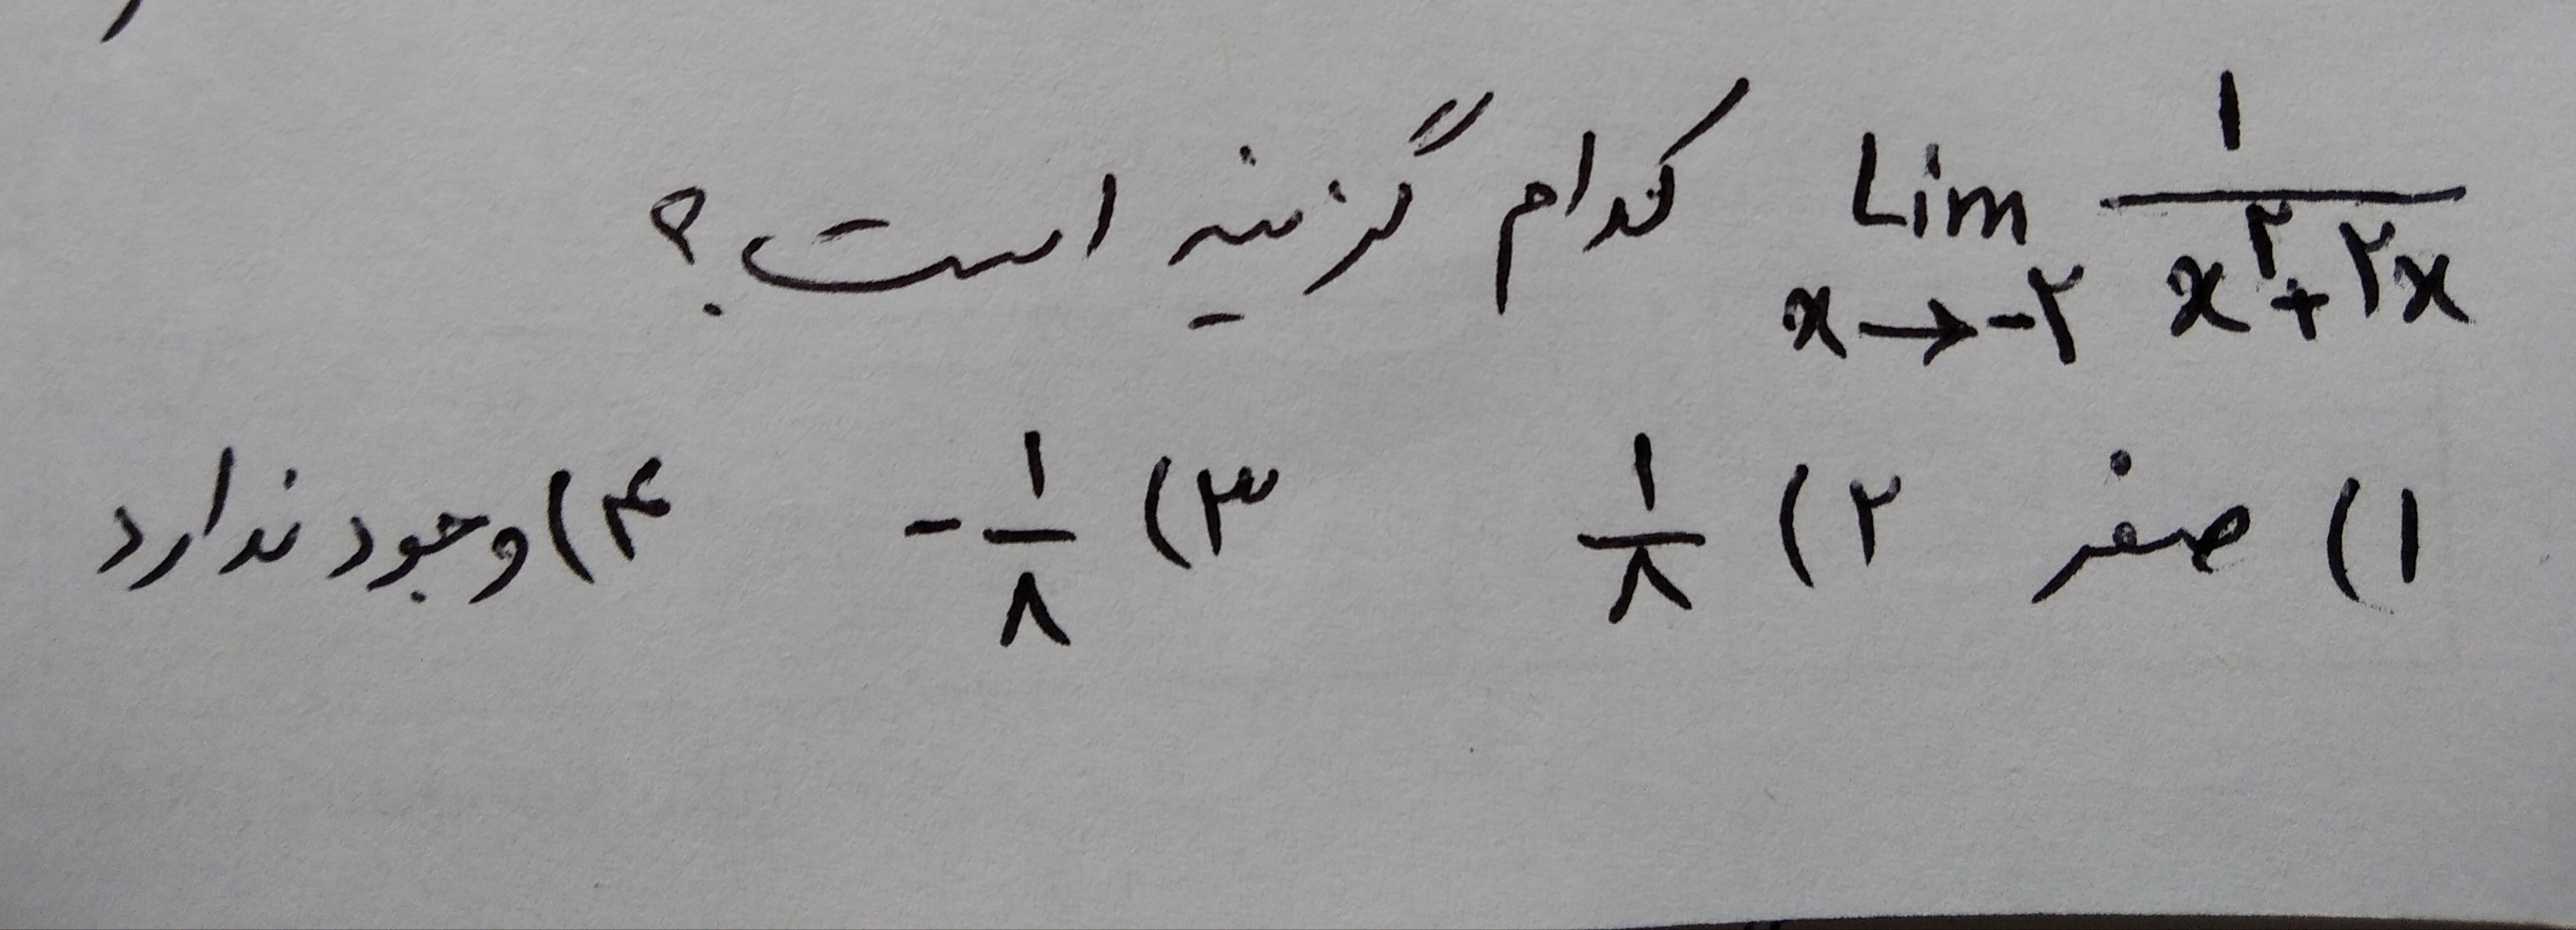 Lim x→-۲ ۱/(x^۲+۲x) کدام گزینه است؟
۱) صفر ۲) ۱/۸ ۳) -۱/۸ ۴) وجود ندارد